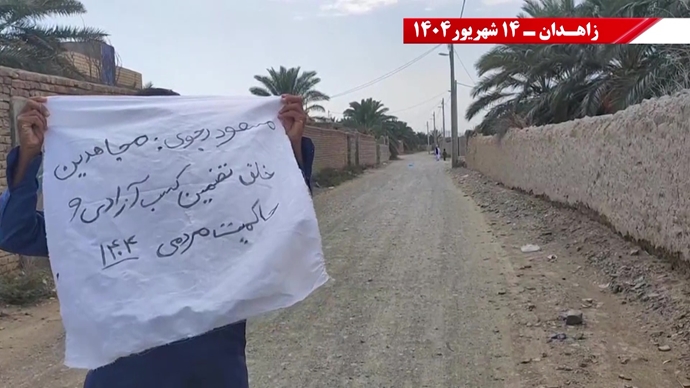 زاهدان ـ ۱۴ شهریور ۱۴۰۴
مسعود رجوی: مجاهدین
خلق تضمین کسب آزادی و
حاکمیت مردمی ۱۴۰۴